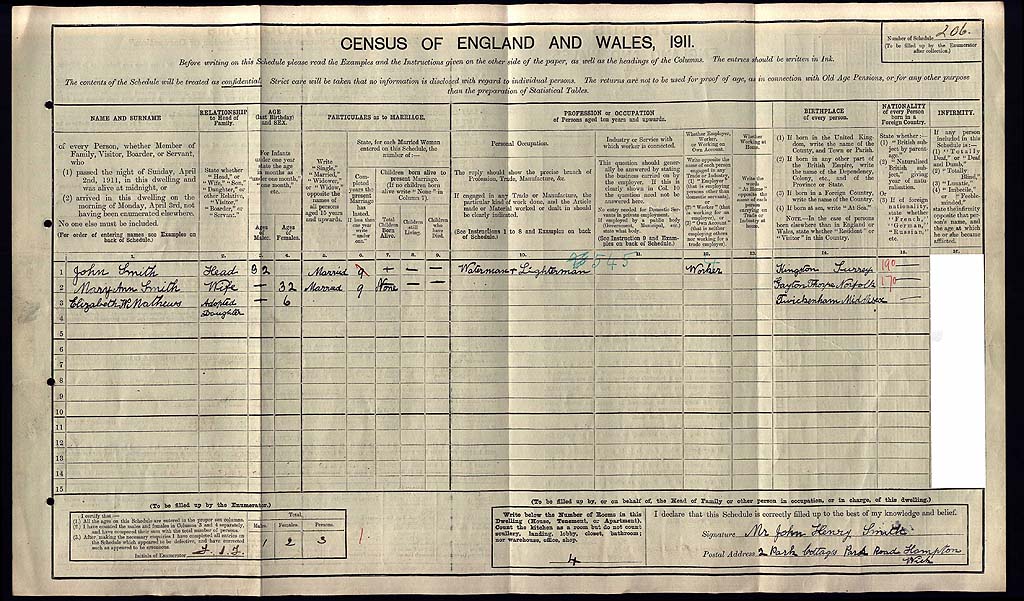 Number of Schedule 206.
(To be filled up by the Enumerator after collection.)
CENSUS OF ENGLAND AND WALES, 1911.
Before writing on this Schedule please read the Examples and the Instructions given on the other side of the paper, as well as the headings of the Columns. The entries should be written in Ink.
The contents of the Schedule will be treated as confidential. Strict care will be taken that no information is disclosed with regard to individual persons. The returns are not to be used for proof of age, as in connection with Old Age Pensions, or for any other purpose
than the preparation of Statistical Tables.
NAME AND SURNAME
of every Person, whether Member of
Family, Visitor, Boarder, or Servant,
who
(1) passed the night of Sunday, April
2nd, 1911, in this dwelling and
was alive at midnight, or
(2) arrived in this dwelling on the
morning of Monday, April 3rd, not
having been enumerated elsewhere.
No one else must be included.
(For order of entering names see Examples on
back of Schedule.)
RELATIONSHIP
to Head of
Family.
State whether
"Head," or
"Wife," "Son,"
"Daughter," or
other Relative,
"Visitor,"
"Boarder," or
"Servant."
AGE
(last Birthday)
and SEX.
For Infants
under one year
state the age
in months as
"under one month,"
"one month,"
etc.
Ages of Males.
Ages of Females.
PARTICULARS as to MARRIAGE.
Write
"Single,"
"Married,"
"Widower,"
or "Widow,"
opposite the
names of
all persons
aged 15 years
and upwards.
State, for each Married Woman
entered on this Schedule, the
number of:—
Completed years the present Marriage has lasted. If less than one year write "under one."
Children born alive to
present Marriage.
(If no children born
alive write "None" in
Column 7).
Total Children Born Alive.
Children still Living.
Children who have Died.
PROFESSION or OCCUPATION
of Persons aged ten years and upwards.
Personal Occupation.
The reply should show the precise branch of
Profession, Trade, Manufacture, &c.
If engaged in any Trade or Manufacture, the
particular kind of work done, and the Article
made or Material worked or dealt in should
be clearly indicated.
(See Instructions 1 to 8 and Examples on back
of Schedule.)
Industry or Service with
which worker is connected.
This question should generally
be answered by stating
the business carried on by
the employer. If this is
clearly shown in Col. 10
the question need not be
answered here.
No entry needed for Domestic Servants
in private employment.
If employed by a public body
(Government, Municipal, etc.)
state what body.
(See Instruction 9 and Examples
on back of Schedule.)
Whether Employer,
Worker,
or Working on
Own Account.
Whether
Working at
Home.
Write the
words
"At Home"
opposite the
name of each
person
carrying on
Trade or
Industry at
home.
BIRTHPLACE
of every person.
(1) If born in the United Kingdom,
write the name of the
County, and Town or Parish.
(2) If born in any other part of
the British Empire, write
the name of the Dependency,
Colony, etc., and of the
Province or State.
(3) If born in a Foreign Country,
write the name of the Country.
(4) If born at sea, write "At Sea."
NOTE.—In the case of persons
born elsewhere than in England or
Wales, state whether "Resident" or
"Visitor" in this Country.
NATIONALITY
of every Person
born in a
Foreign Country.
State whether:—
(1) "British subject
by parentage."
(2) "Naturalised
British subject,"
giving
year of naturalisation.
(3) If of foreign
nationality,
state whether
"French,"
"German,"
"Russian,"
etc.
INFIRMITY.
If any person
included in this
Schedule is:—
(1) "Totally
Deaf," or "Deaf
and Dumb,"
(2) "Totally
Blind,"
(3) "Lunatic,"
(4) "Imbecile,"
or "Feeble-minded,"
state the infirmity
opposite that person's
name, and
the age at which
he or she became
afflicted.
1 John Smith Head 32 Married 9 — — — Waterman & Lighterman 545 Worker Kingston Surrey 190 —
2 Mary Ann Smith Wife — 32 Married 9 None — — Norfolk 170 —
3 Elizabeth Mathews Adopted Daughter — 6 Twickenham Middlesex —
4
5
6
7
8
9
10
11
12
13
14
15
(To be filled up by the Enumerator.)
I certify that:—
(1.) All the ages on this Schedule are entered in the proper sex columns.
(2.) I have counted the males and females in Columns 3 and 4 separately,
and have compared their sum with the total number of persons.
(3.) After making the necessary enquiries I have completed all entries on
the Schedule which appeared to be defective, and have corrected
such as appeared to be erroneous.
Initials of Enumerator
Total.
Males. Females. Persons.
1 2 3
1
(To be filled up by, or on behalf of, the Head of Family or other person in occupation, or in charge, of this dwelling.)
Write below the Number of Rooms in this
Dwelling (House, Tenement, or Apartment).
Count the kitchen as a room but do not count
scullery, landing, lobby, closet, bathroom;
nor warehouse, office, shop.
4
I declare that this Schedule is correctly filled up to the best of my knowledge and belief.
Signature Mr John Henry Smith
Postal Address 2 Park Cottages Park Road Hampton
Wick